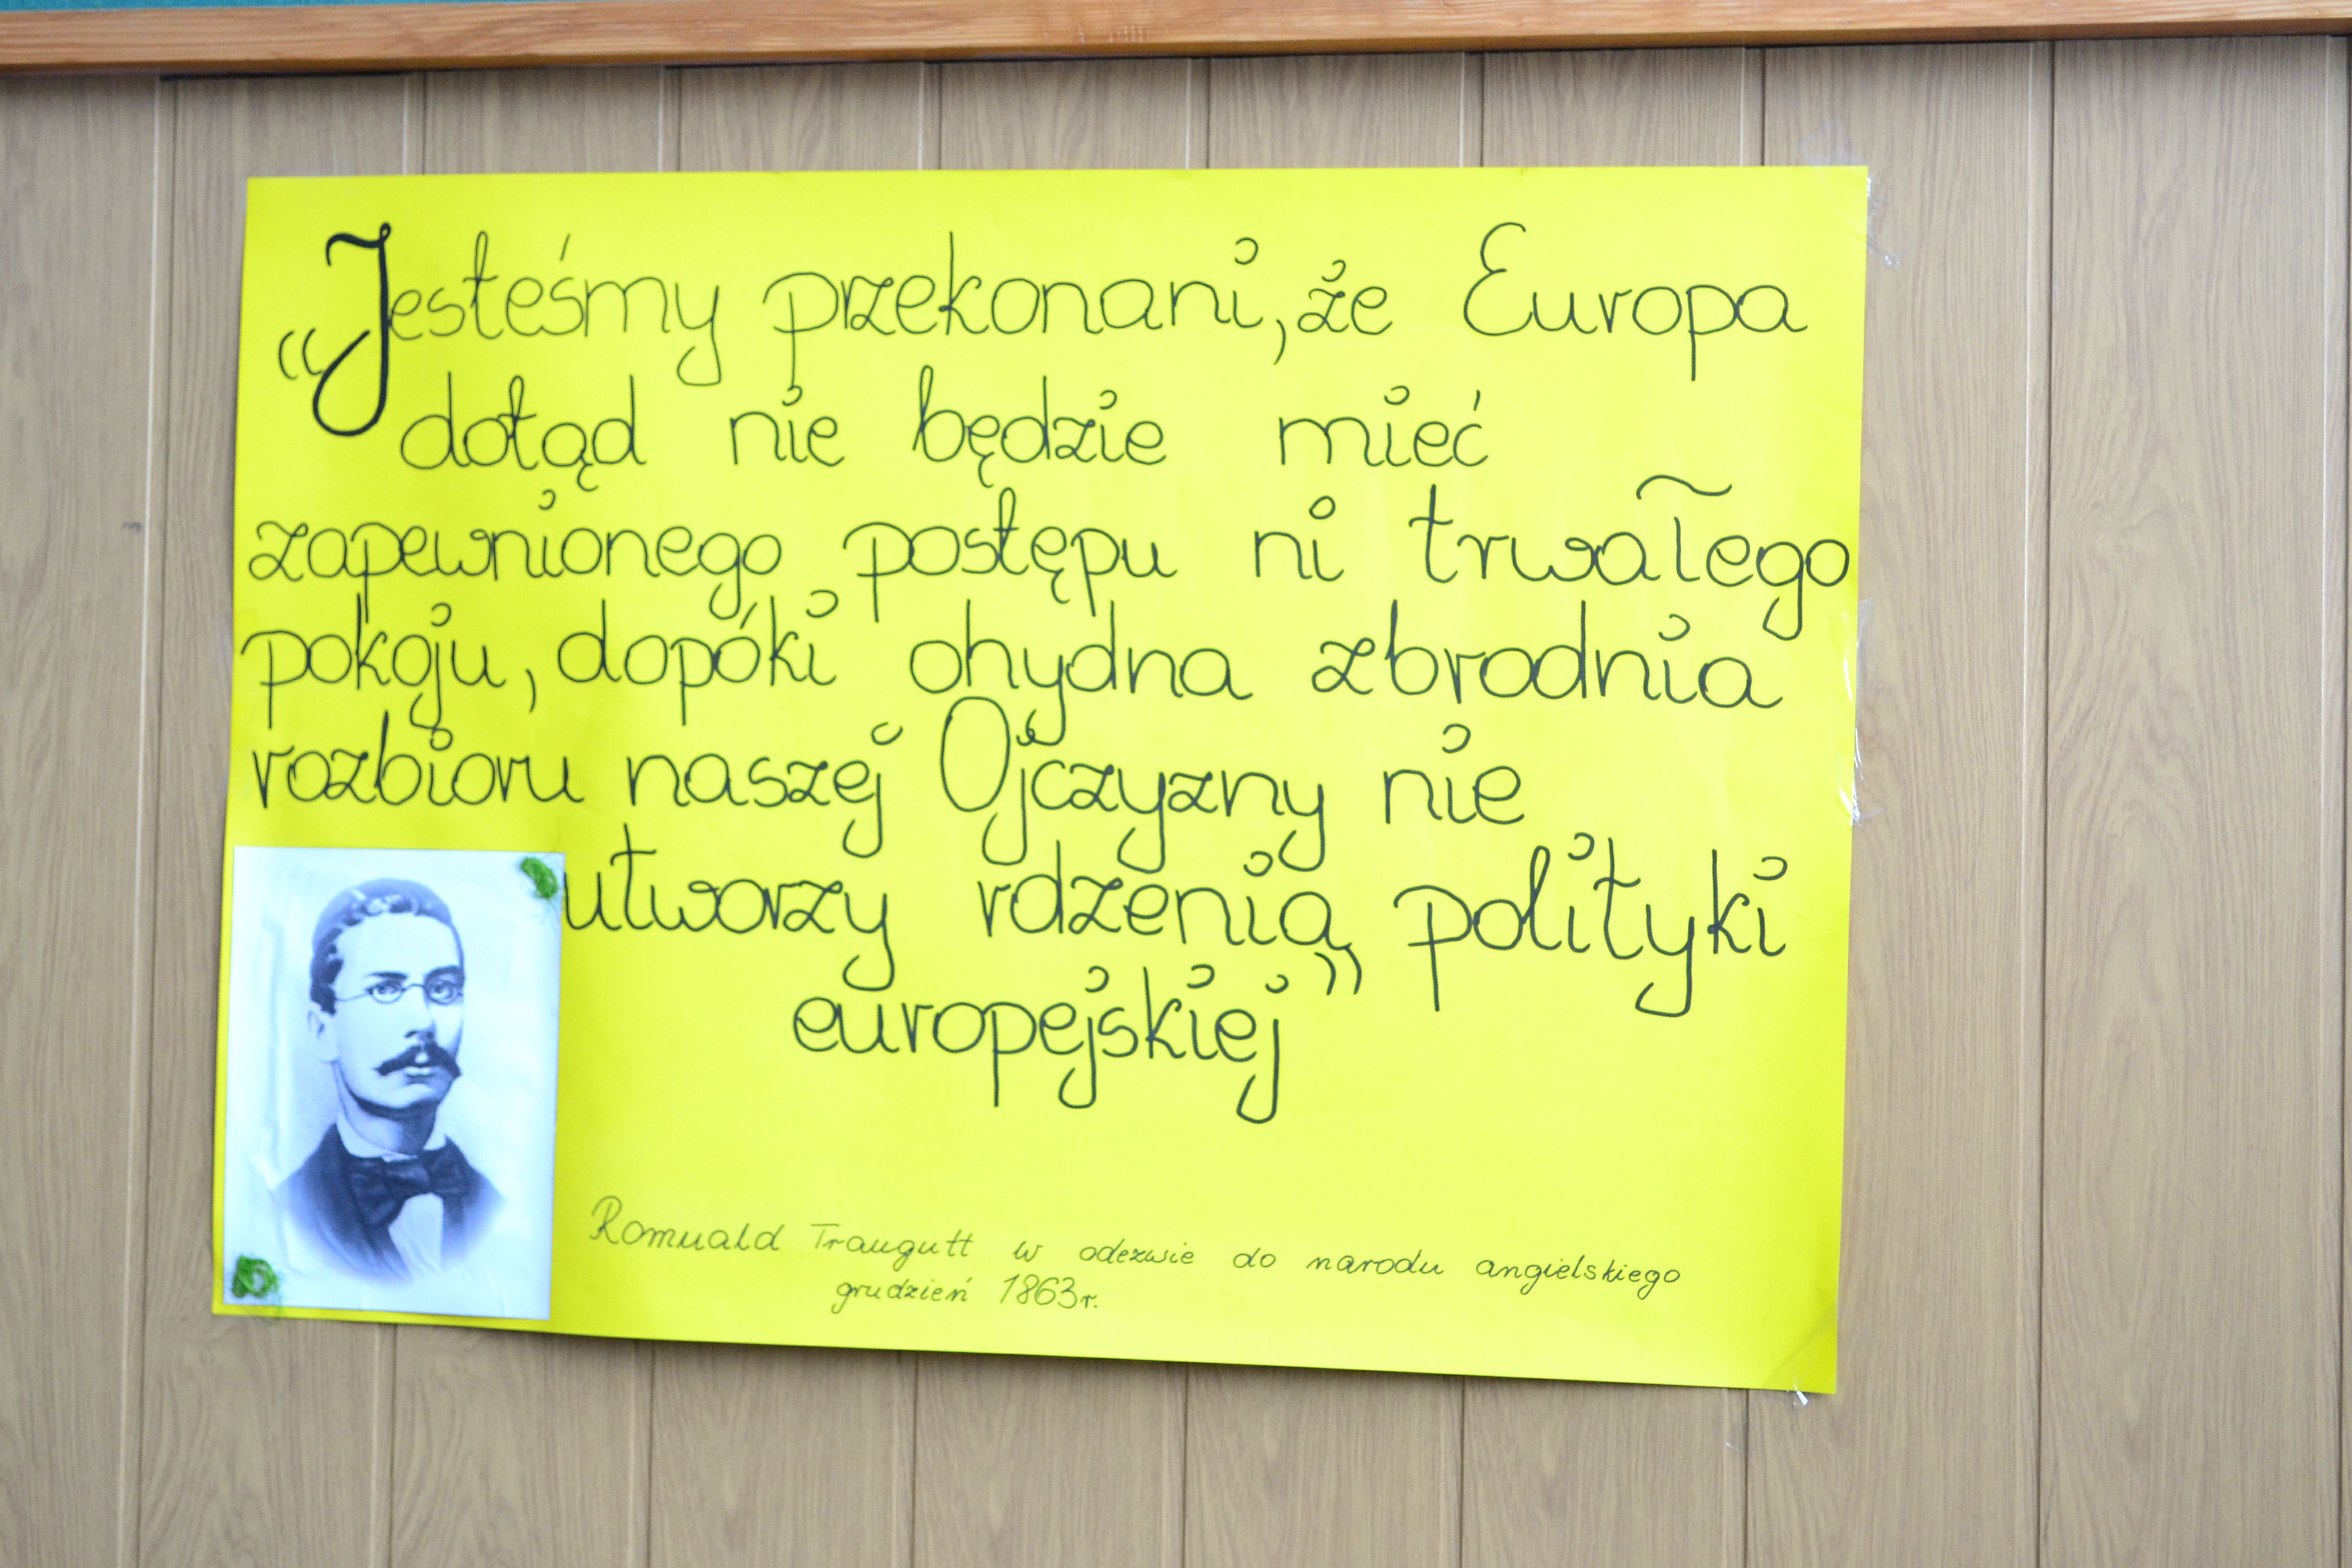 „Jesteśmy przekonani, że Europa
dotąd nie będzie mieć
zapewnionego postępu ni trwałego
pokoju, dopóki ohydna zbrodnia
rozbioru naszej Ojczyzny nie
utworzy rdzenia polityki
europejskiej”
Romuald Traugutt w odezwie do narodu angielskiego
grudzień 1863r.